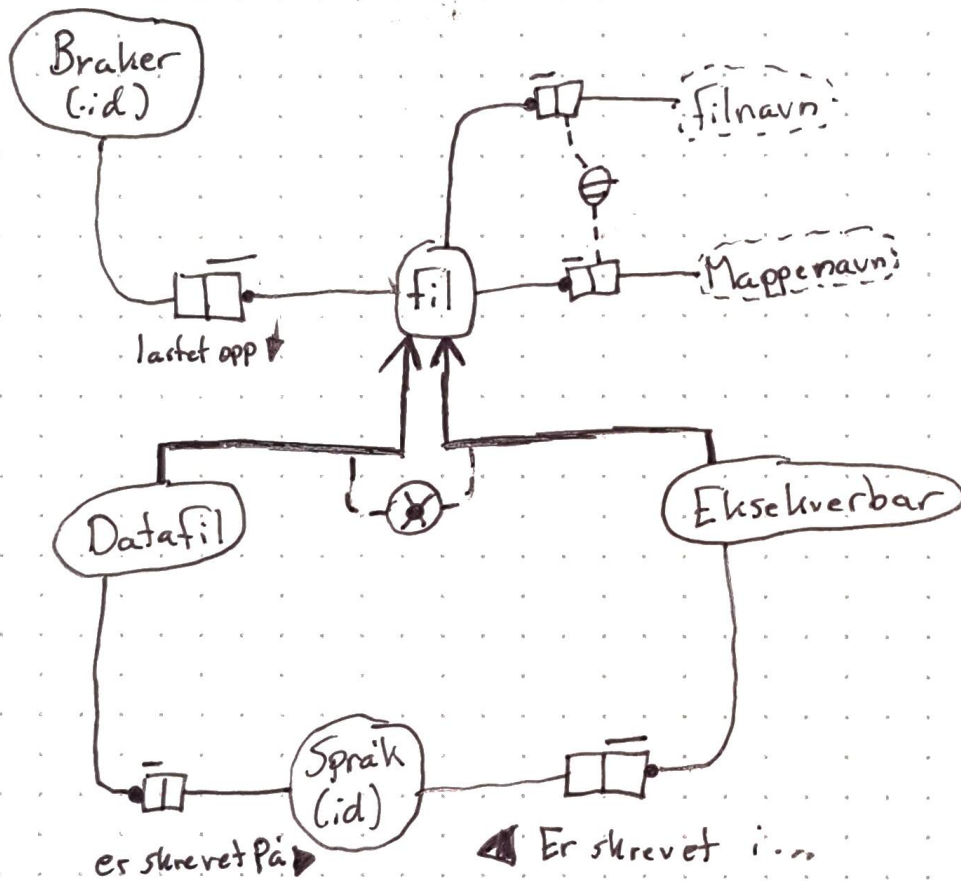 Braker
(.id)
filnavn
Mappenavn
fil
lastet opp
Datafil
Eksekverbar
Språk
(id)
er skrevet På
Er skrevet i...